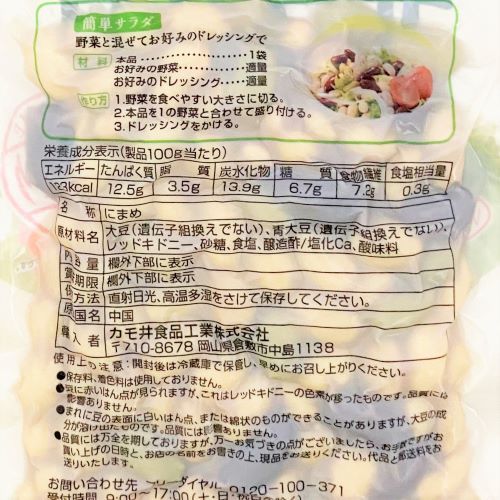 簡単サラダ
野菜と混ぜてお好みのドレッシングで
材料 本品‥‥‥‥‥‥‥‥‥‥1袋
お好みの野菜‥‥‥‥‥‥適量
お好みのドレッシング‥‥適量
作り方 1.野菜を食べやすい大きさに切る。
2.本品を1の野菜と合わせて盛り付ける。
3.ドレッシングをかける。
栄養成分表示(製品100g当たり)
エネルギー たんぱく質 脂質 炭水化物 糖質 食物繊維 食塩相当量
kcal 12.5g 3.5g 13.9g 6.7g 7.2g 0.3g
名称 にまめ
原材料名 大豆(遺伝子組換えでない)、青大豆(遺伝子組換えでない)、
レッドキドニー、砂糖、食塩、醸造酢/塩化Ca、酸味料
内容量 欄外下部に表示
賞味期限 欄外下部に表示
方法 直射日光、高温多湿をさけて保存してください。
国名 中国
輸入者 カモ井食品工業株式会社
〒710-8678 岡山県倉敷市中島1138
使用上の注意:開封後は冷蔵庫で保管し、早めにお召し上がりください。
●保存料、着色料は使用しておりません。
●豆に赤いはん点が見られますが、これはレッドキドニーの色素が移ったものです。品質には
影響ありません。
●まれに豆の表面に白いはん点、または綿状のものができることがありますが、大豆の成
分が溶け出たものです。品質には影響ありません。
●品質には万全を期しておりますが、万一お気づきの点がございましたら、お手数ですがお
買い上げの日時と、お店の名前をお書きの上、現品をお送りください。代品と郵送料をお
送りいたします。
お問い合わせ先 ーダイヤル 0120-100-371
受付時間 9:00~17:00(土・日